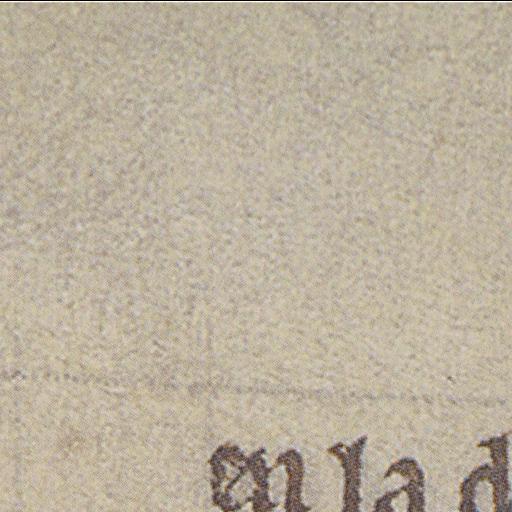 En la d